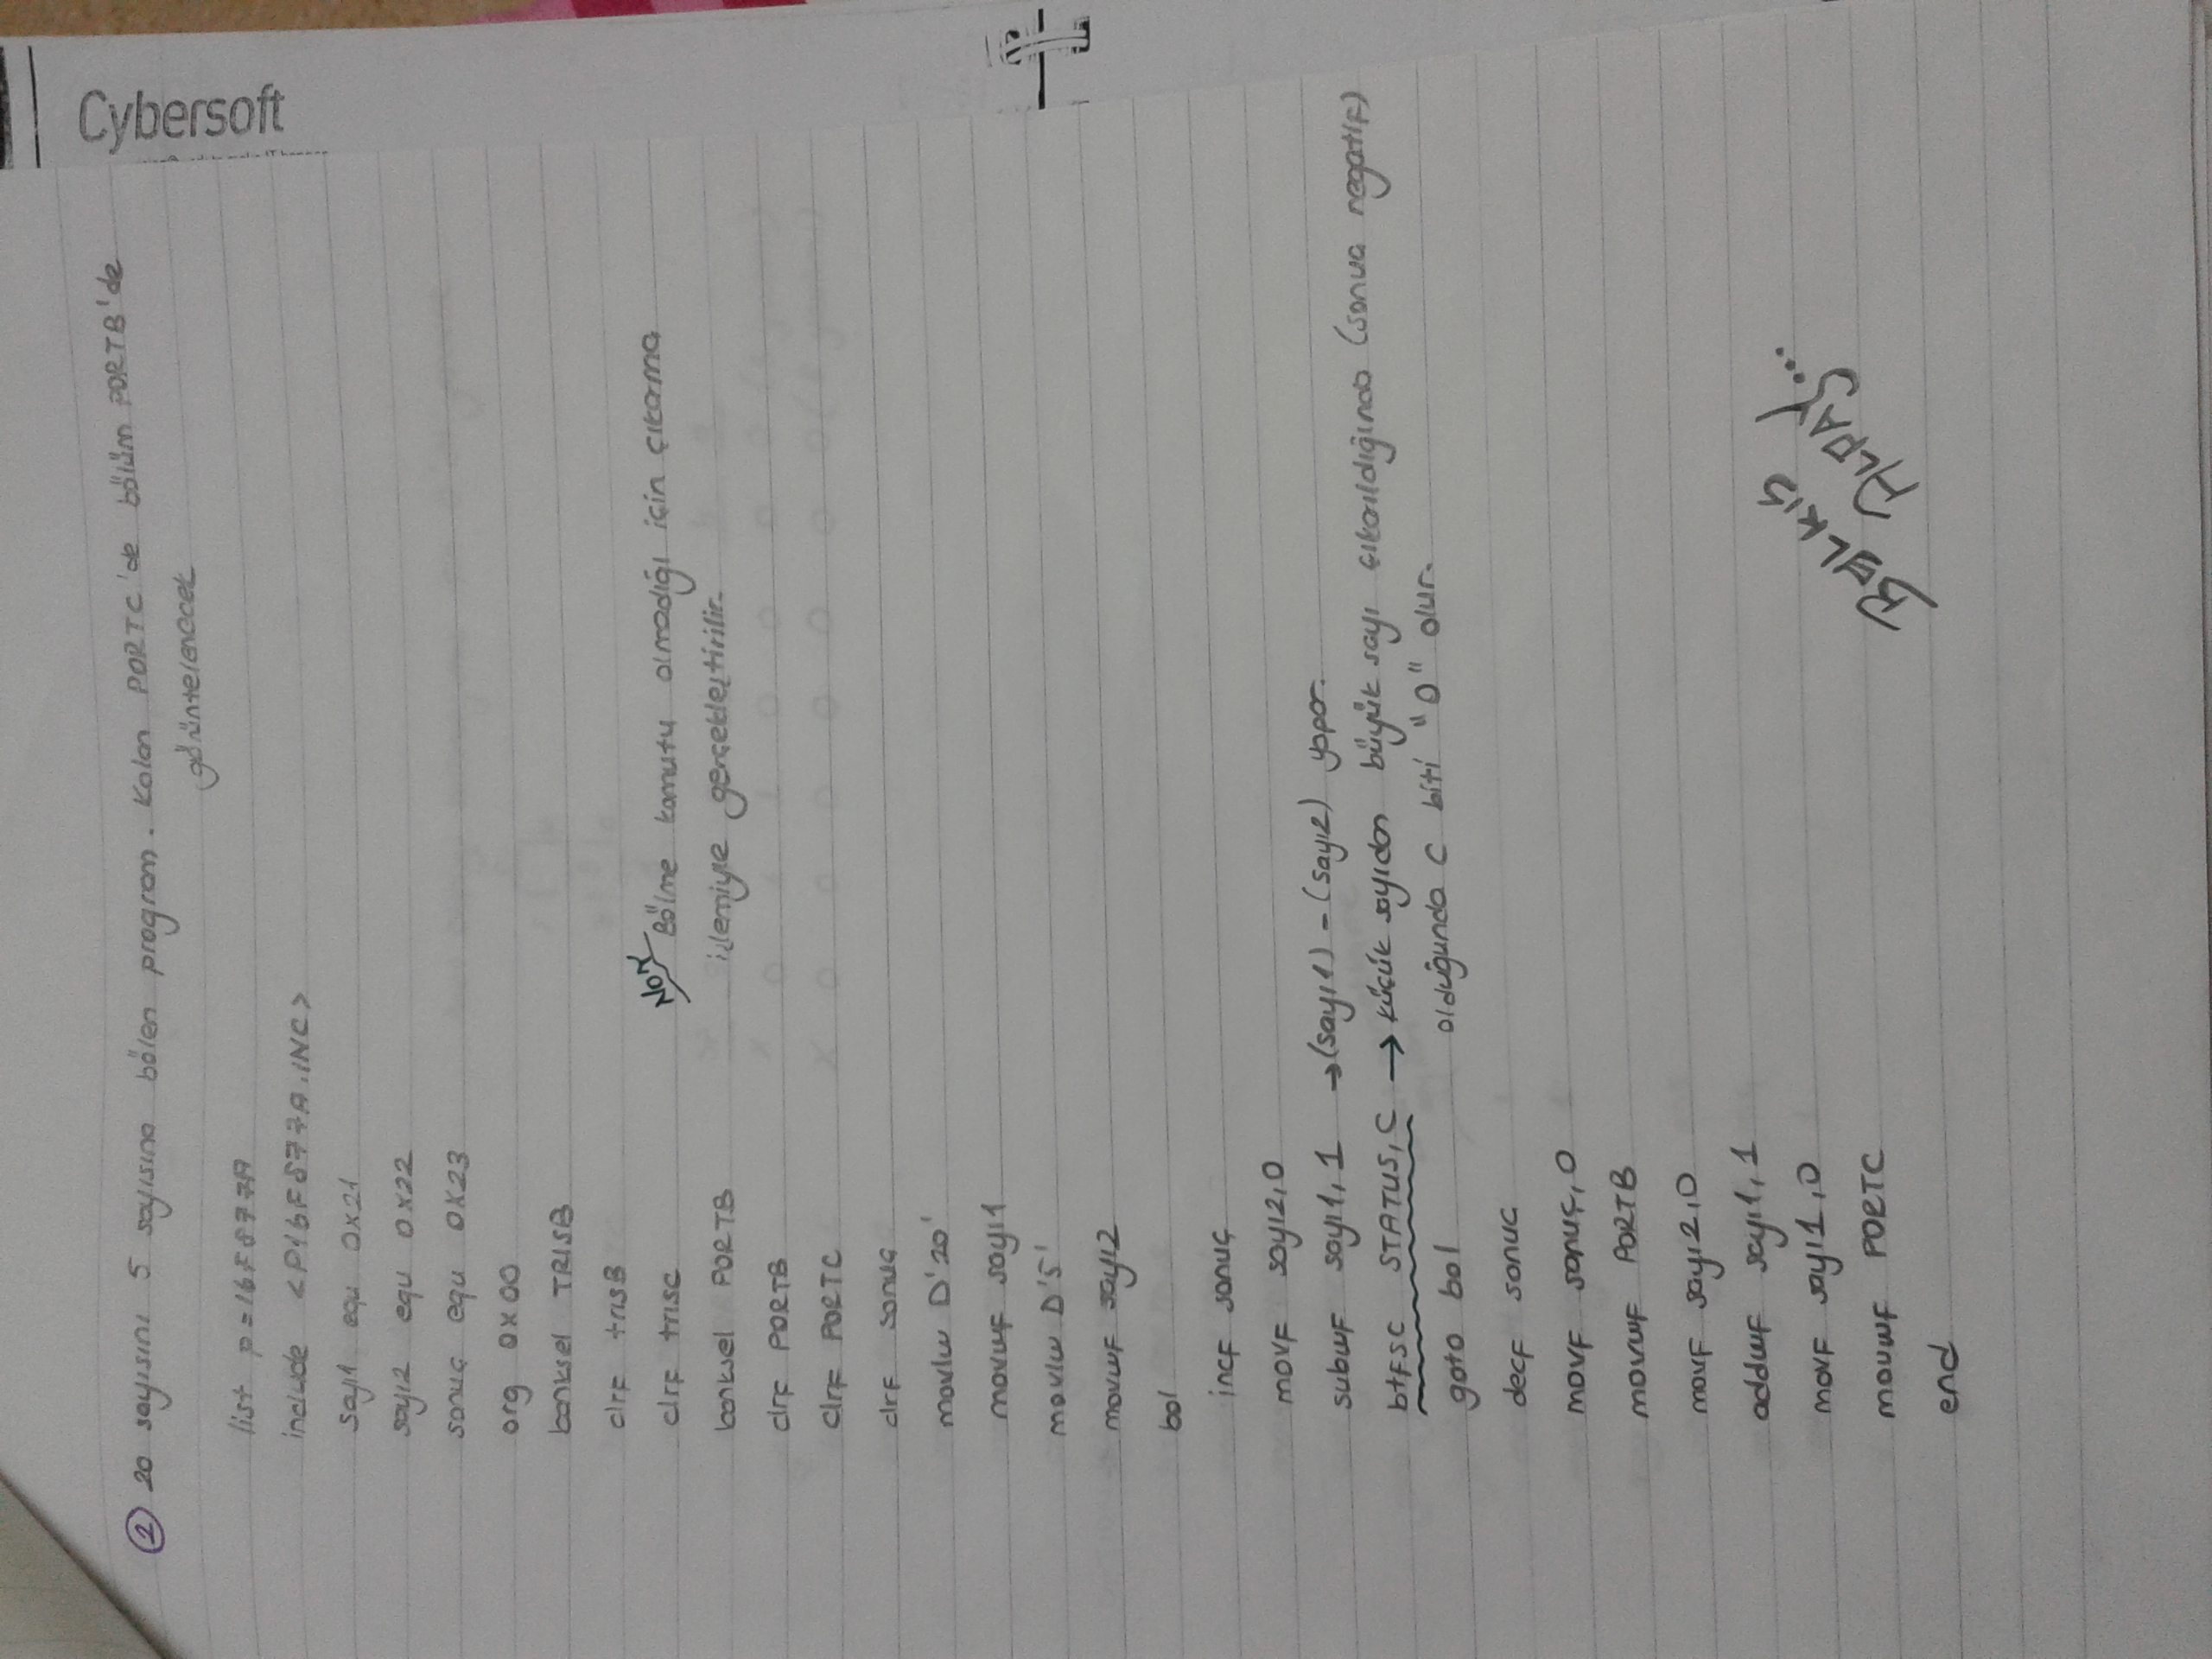 Cybersoft
② 20 sayısını 5 sayısına bölen program. Kalan PORTC'de bölüm PORTB'de
görüntelenecek
list p=16F877A
include <P16F877A.INC>
sayı1 equ 0x21
sayı2 equ 0x22
sonuç equ 0x23
org 0x00
banksel TRISB
clrf trisB
clrf trisc
banksel PORTB
clrf PORTB
clrf PORTC
clrf sonuç
movlw D'20'
movwf sayı1
movlw D'5'
movwf sayı2
bol
incf sonuç
movf sayı2,0
subwf sayı1,1 →(sayı1) - (sayı2) yapar.
btfsc STATUS,C → küçük sayıdan büyük sayı çıkarıldığında (sonuç negatif)
goto bol olduğunda C biti "0" olur.
decf sonuc
movf sonuç,0
movwf PORTB
movf sayı2,0
addwf sayı1,1
movf sayı1,0
movwf PORTC
end
NOT Bölme komutu olmadığı için çıkarma
işlemiyle gerçekleştirilir.
BELKIS
ALPAY...